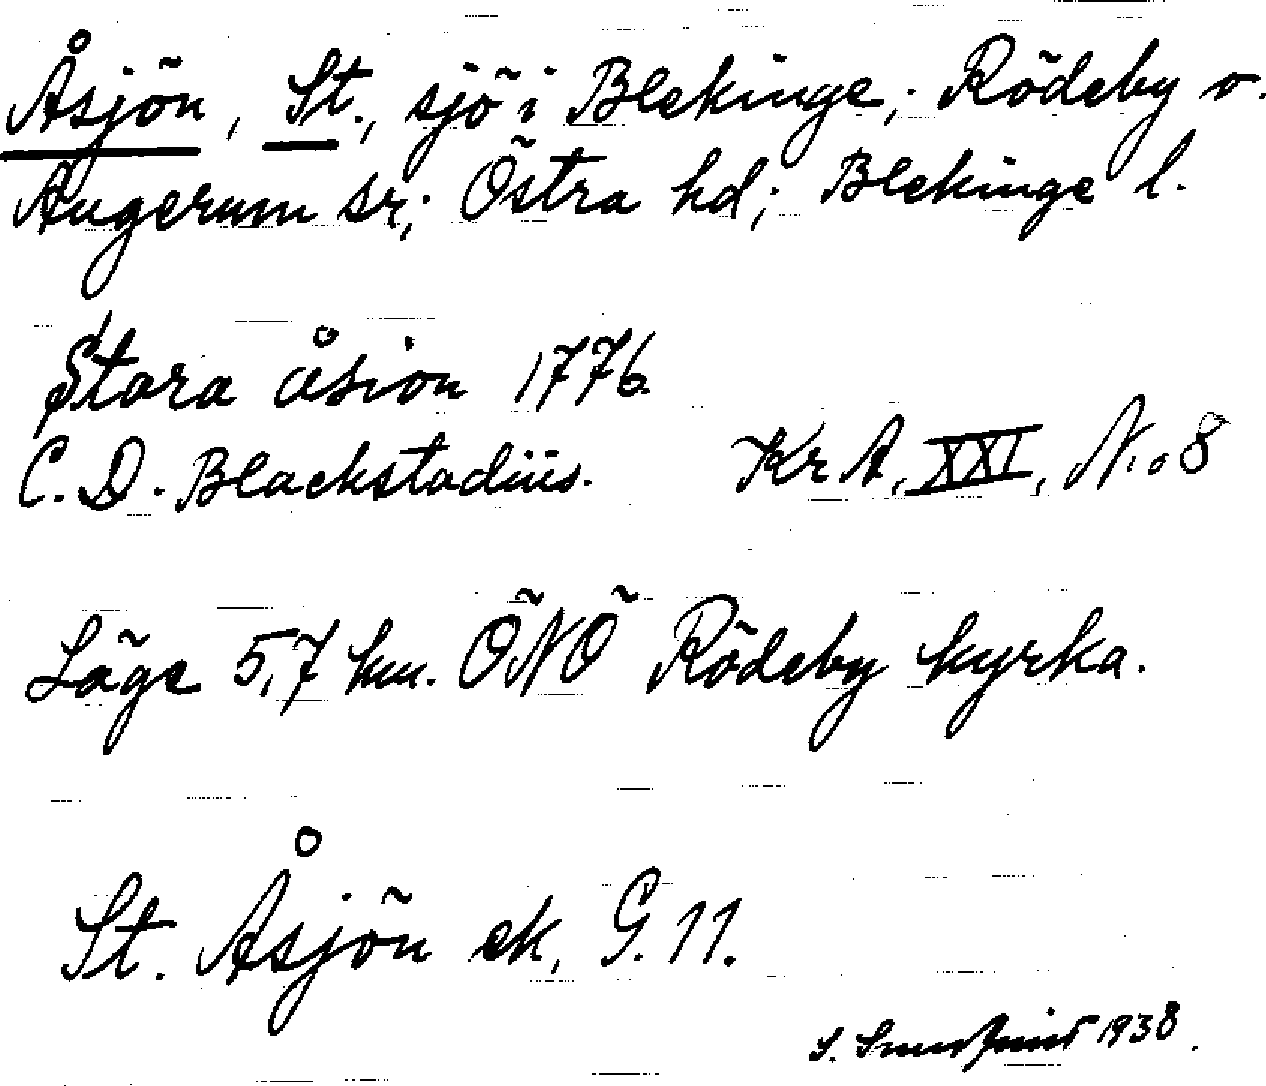 Åsjön, St., sjö i Blekinge; Rödeby o.
Augerum sr; Östra hd; Blekinge l.
Stora åsion 1776.
C. D. Blackstadius. Kr A, XXI, N:o 8
Läge 5,7 km. ÖNÖ Rödeby kyrka.
St. Åsjön ek, G. 11.
S. 1938.